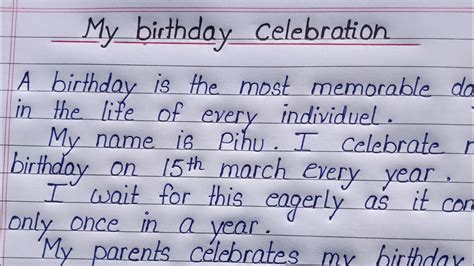 My birthday celebration
A birthday is the most memorable da
in the life of every individuel.
My name is Pihu. I celebrate
birthday on 15th march every year.
I wait for this eagerly as it com
only once in a year.
My parents celebrates my birthday